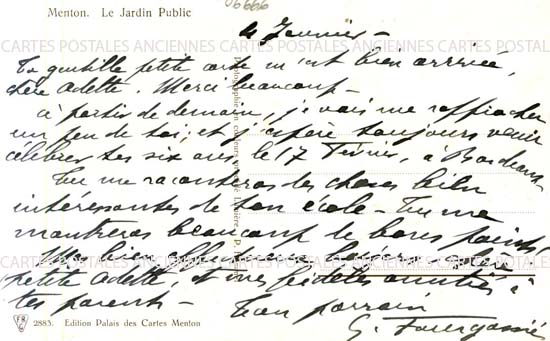 Menton. Le Jardin Public
06666
4 Janvier –
Ta gentille petite carte m'est bien arrivée,
chère Odette. Merci beaucoup –
à partir de demain, je vais me rapprocher
un peu de toi, et j'espère toujours venir
célébrer tes six ans le 17 Février, à Bordeaux –
Tu me raconteras des choses bien
intéressantes de ton école – Tu me
montreras beaucoup de bons points
petite Odette, et mes fidèles amitiés à
tes parents – Ton parrain
G.
2883. Edition Palais des Cartes Menton
CARTES POSTALES ANCIENNES CARTES POSTALES ANCIENNES